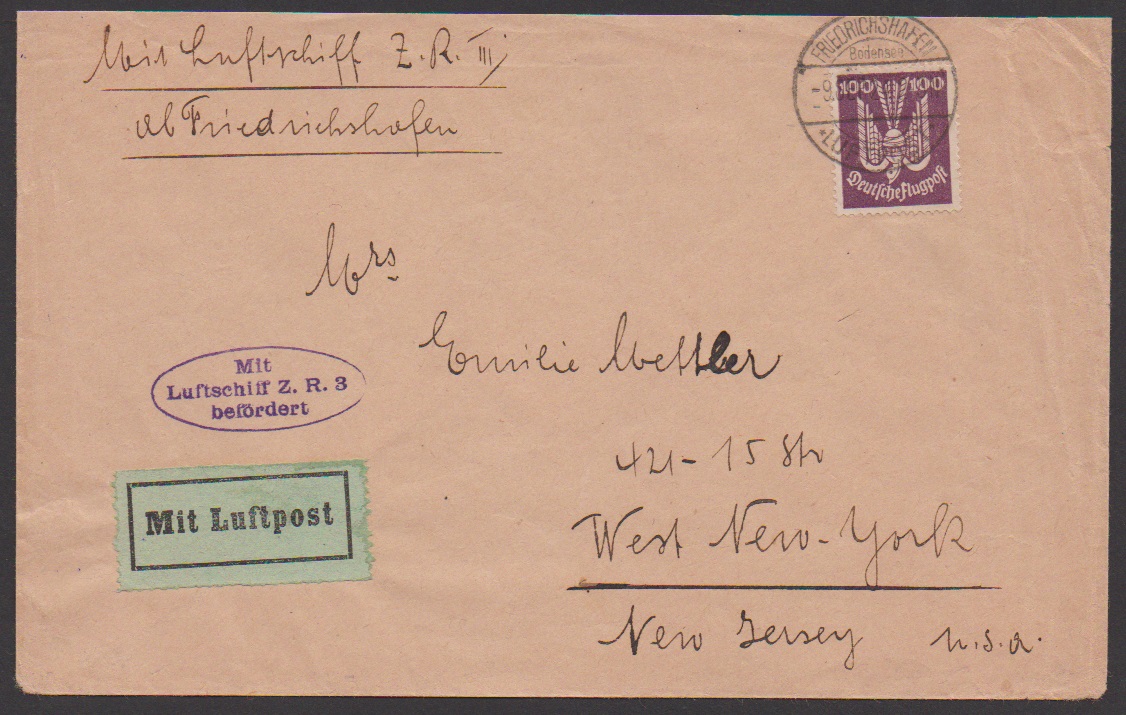 Mit Luftschiff Z. R. III
ab Friedrichshafen
FRIEDRICHSHAFEN
Bodensee
100 100
Deutsche Flugpost
Mrs
Emilie Mettler
Mit
Luftschiff Z. R. 3
befördert
421-15 Str
Mit Luftpost
West New-York
New Jersey U.S.A.